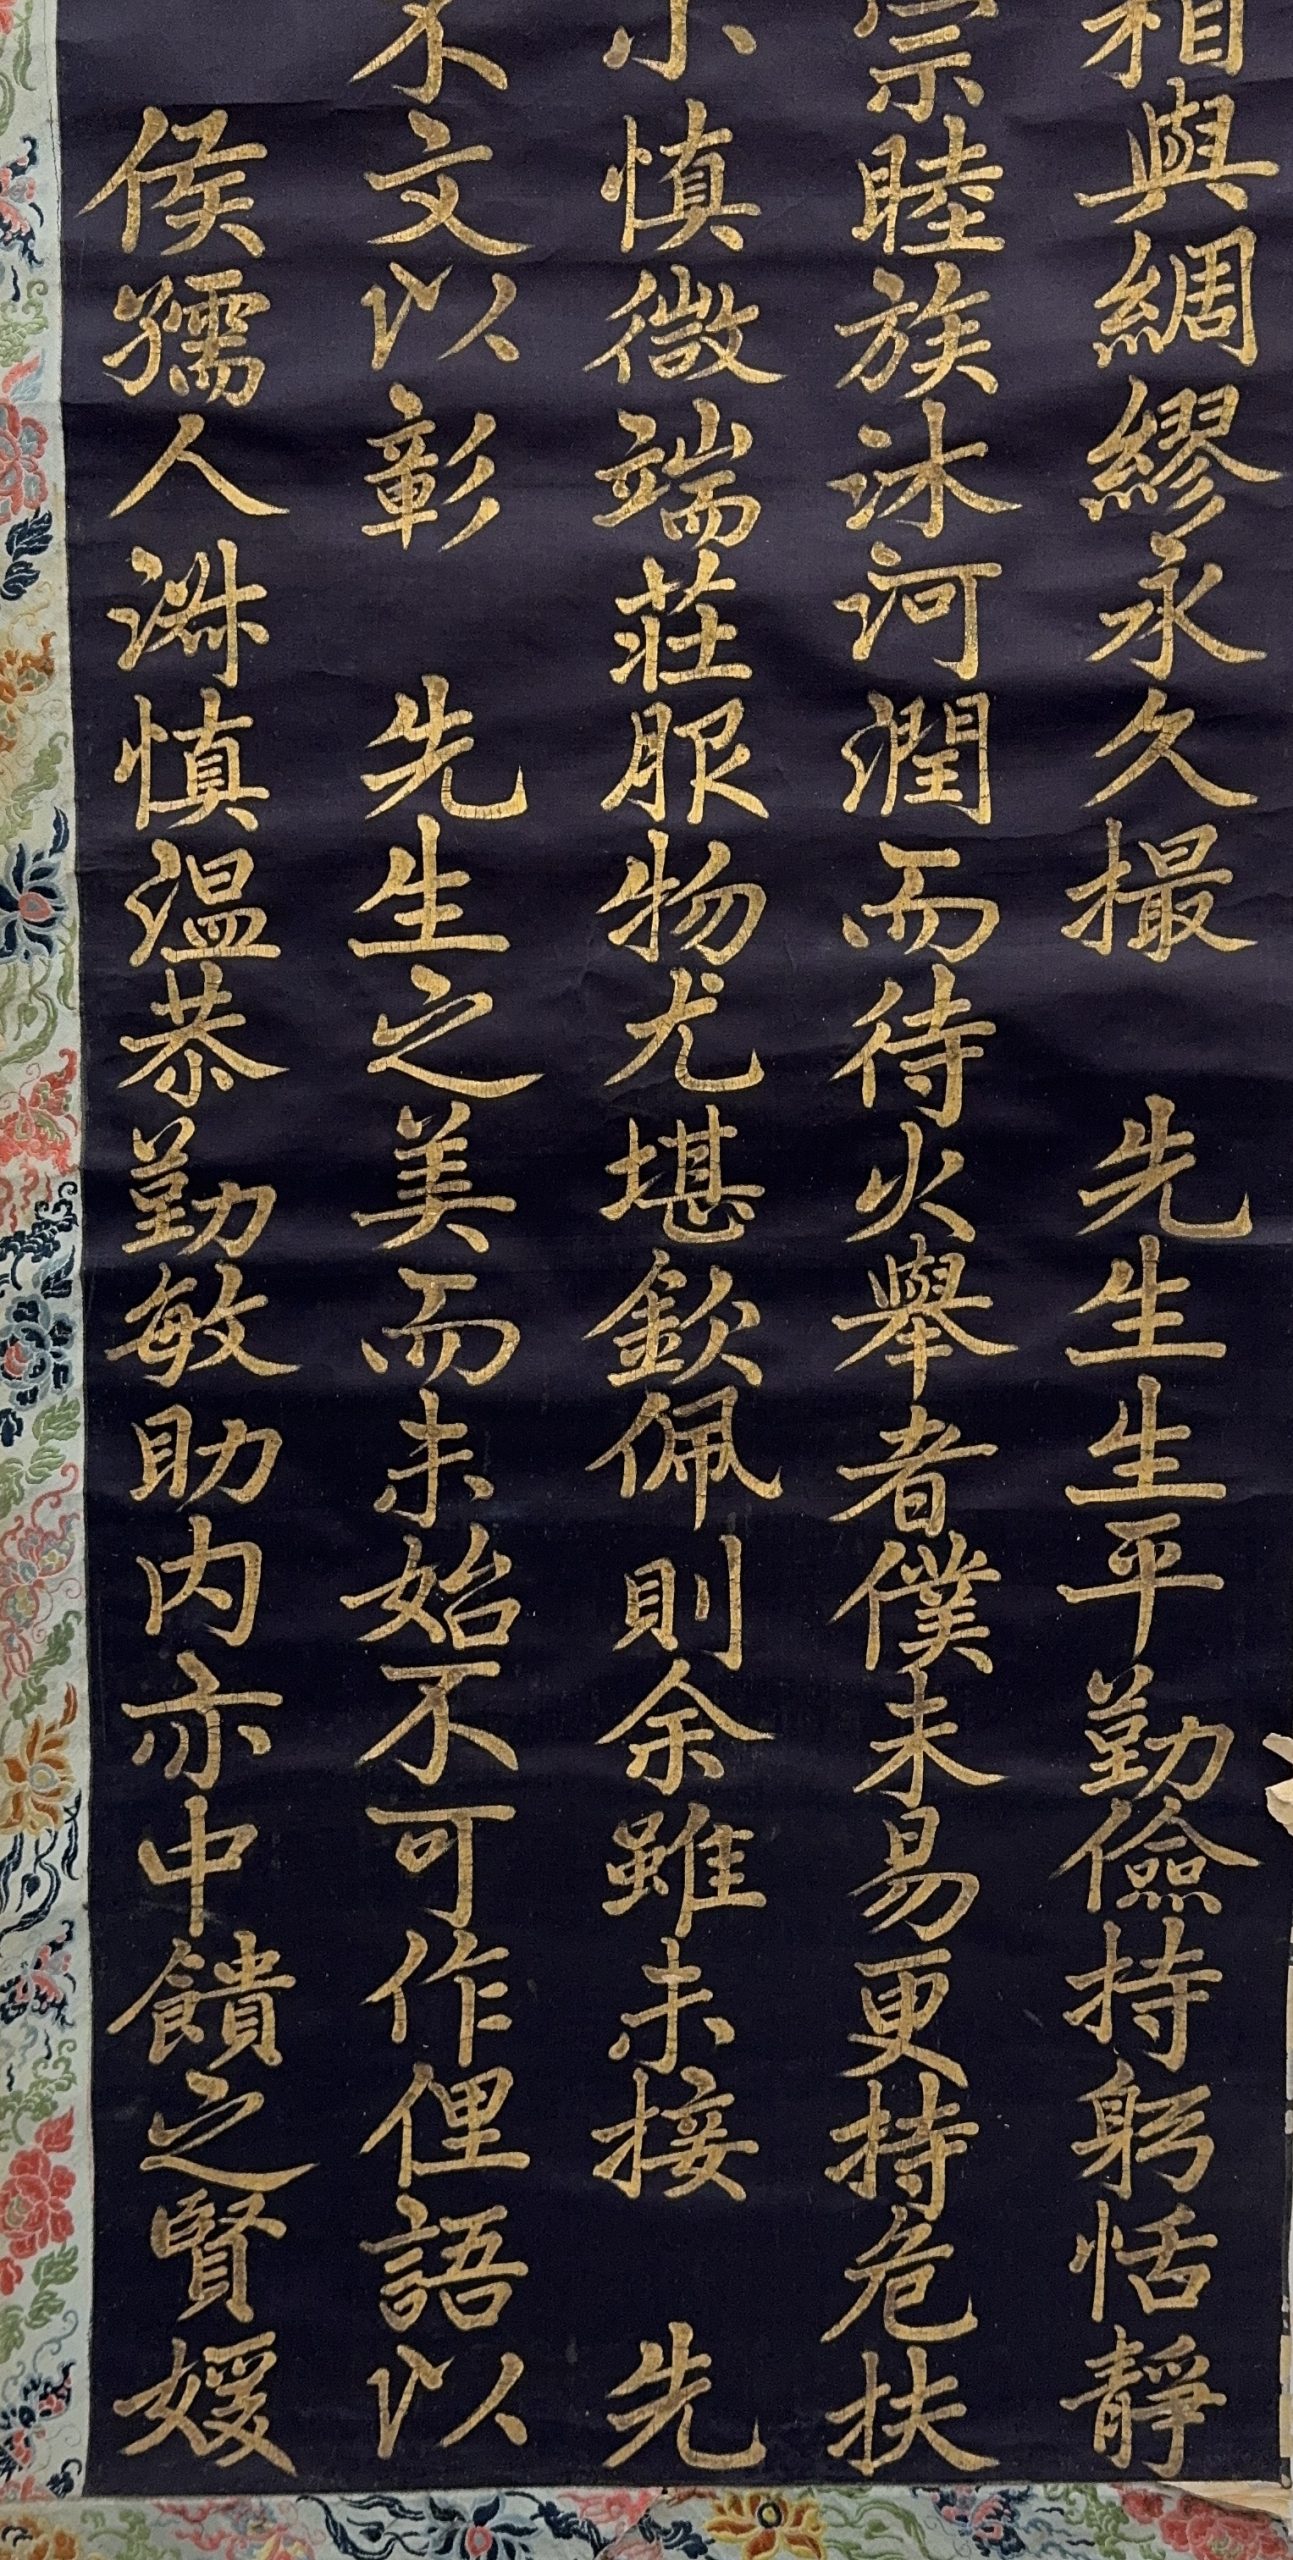 相與綢繆永久撮　先生生平勤儉持躬恬靜
宗睦族沐河潤而待火舉者僕未易更持危扶
小慎微端莊服物尤堪欽佩則余雖未接　先
不文以彰　先生之美而未始不可作俚語以
侯孺人淑慎溫恭勤敏助內亦中饋之賢媛